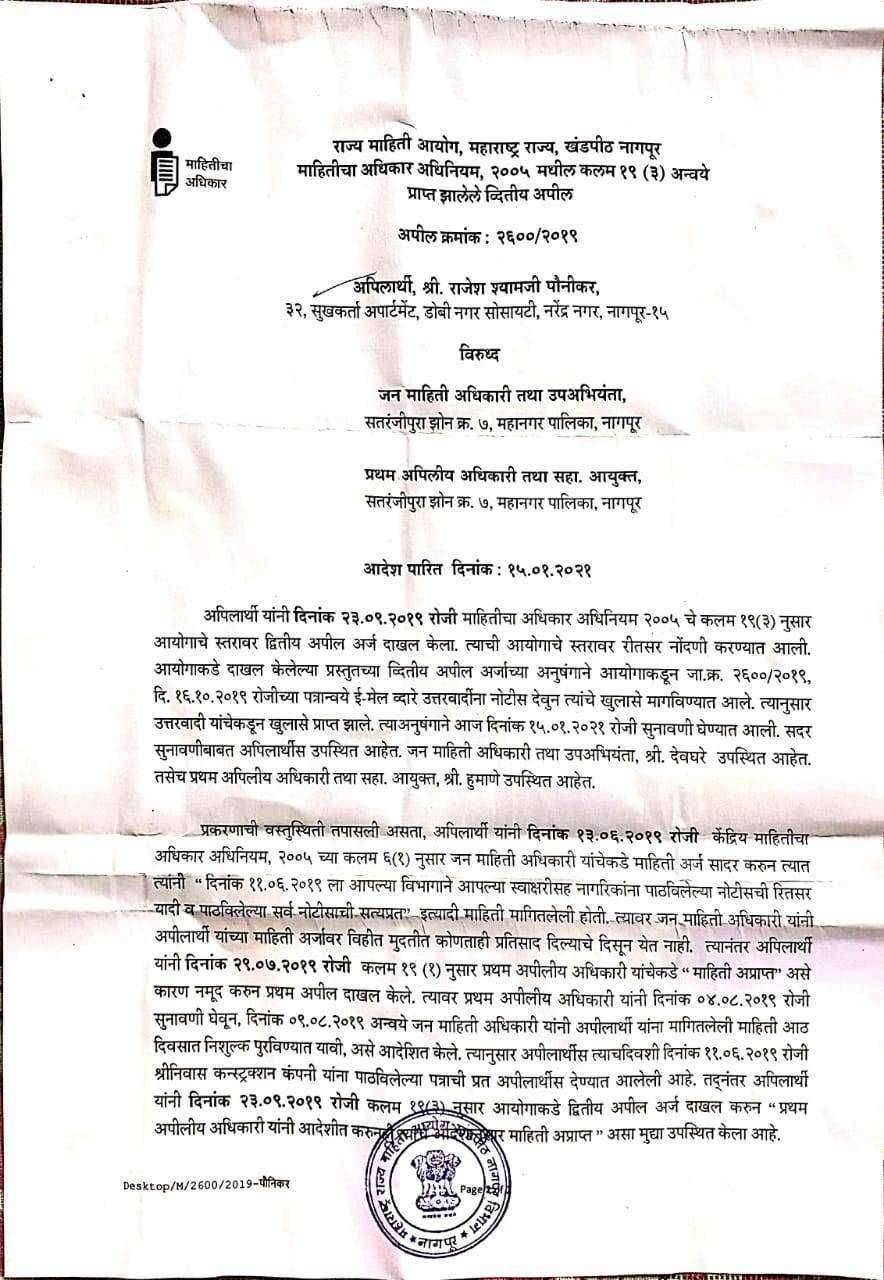 माहितीचा
अधिकार
राज्य माहिती आयोग, महाराष्ट्र राज्य, खंडपीठ नागपूर
माहितीचा अधिकार अधिनियम, २००५ मधील कलम १९ (३) अन्वये
प्राप्त झालेले व्दितीय अपील
अपील क्रमांक : २६००/२०१९
अपिलार्थी, श्री. राजेश श्यामजी पौनीकर,
३२, सुखकर्ता अपार्टमेंट, डोबी नगर सोसायटी, नरेंद्र नगर, नागपूर-१५
विरुध्द
जन माहिती अधिकारी तथा उपअभियंता,
सतरंजीपुरा झोन क्र. ७, महानगर पालिका, नागपूर
प्रथम अपिलीय अधिकारी तथा सहा. आयुक्त,
सतरंजीपुरा झोन क्र. ७, महानगर पालिका, नागपूर
आदेश पारित दिनांक : १५.०१.२०२१
अपिलार्थी यांनी दिनांक २३.०९.२०१९ रोजी माहितीचा अधिकार अधिनियम २००५ चे कलम १९(३) नुसार
आयोगाचे स्तरावर द्वितीय अपील अर्ज दाखल केला. त्याची आयोगाचे स्तरावर रीतसर नोंदणी करण्यात आली.
आयोगाकडे दाखल केलेल्या प्रस्तुतच्या व्दितीय अपील अर्जाच्या अनुषंगाने आयोगाकडून जा.क्र. २६००/२०१९,
दि. १६.१०.२०१९ रोजीच्या पत्रान्वये ई-मेल व्दारे उत्तरवादींना नोटीस देवुन त्यांचे खुलासे मागविण्यात आले. त्यानुसार
उत्तरवादी यांचेकडून खुलासे प्राप्त झाले. त्याअनुषंगाने आज दिनांक १५.०१.२०२१ रोजी सुनावणी घेण्यात आली. सदर
सुनावणीबाबत अपिलार्थीस उपस्थित आहेत. जन माहिती अधिकारी तथा उपअभियंता, श्री. देवघरे उपस्थित आहेत.
तसेच प्रथम अपिलीय अधिकारी तथा सहा. आयुक्त, श्री. हुमाणे उपस्थित आहेत.
प्रकरणाची वस्तुस्थिती तपासली असता, अपिलार्थी यांनी दिनांक १३.०६.२०१९ रोजी केंद्रिय माहितीचा
अधिकार अधिनियम, २००५ च्या कलम ६(१) नुसार जन माहिती अधिकारी यांचेकडे माहिती अर्ज सादर करुन त्यात
त्यांनी “ दिनांक ११.०६.२०१९ ला आपल्या विभागाने आपल्या स्वाक्षरीसह नागरिकांना पाठविलेल्या नोटीसची रितसर
यादी व पाठविलेल्या सर्व नोटीसाची सत्यप्रत” इत्यादी माहिती मागितलेली होती. त्यावर जन माहिती अधिकारी यांनी
अपीलार्थी यांच्या माहिती अर्जावर विहीत मुदतीत कोणताही प्रतिसाद दिल्याचे दिसून येत नाही. त्यानंतर अपिलार्थी
यांनी दिनांक २९.०७.२०१९ रोजी कलम १९ (१) नुसार प्रथम अपीलीय अधिकारी यांचेकडे “ माहिती अप्राप्त” असे
कारण नमूद करुन प्रथम अपील दाखल केले. त्यावर प्रथम अपीलीय अधिकारी यांनी दिनांक ०४.०८.२०१९ रोजी
सुनावणी घेवून, दिनांक ०९.०८.२०१९ अन्वये जन माहिती अधिकारी यांनी अपीलार्थी यांना मागितलेली माहिती आठ
दिवसात निशुल्क पुरविण्यात यावी, असे आदेशित केले. त्यानुसार अपीलार्थीस त्याचदिवशी दिनांक ११.०६.२०१९ रोजी
श्रीनिवास कन्स्ट्रक्शन कंपनी यांना पाठविलेल्या पत्राची प्रत अपीलार्थीस देण्यात आलेली आहे. तद्नंतर अपिलार्थी
यांनी दिनांक २३.०९.२०१९ रोजी कलम १९(३) नुसार आयोगाकडे द्वितीय अपील अर्ज दाखल करुन “ प्रथम
अपीलीय अधिकारी यांनी आदेशीत करुनही माहिती अप्राप्त ” असा मुद्या उपस्थित केला आहे.
Desktop/M/2600/2019-पौनिकर
Page
नागपूर